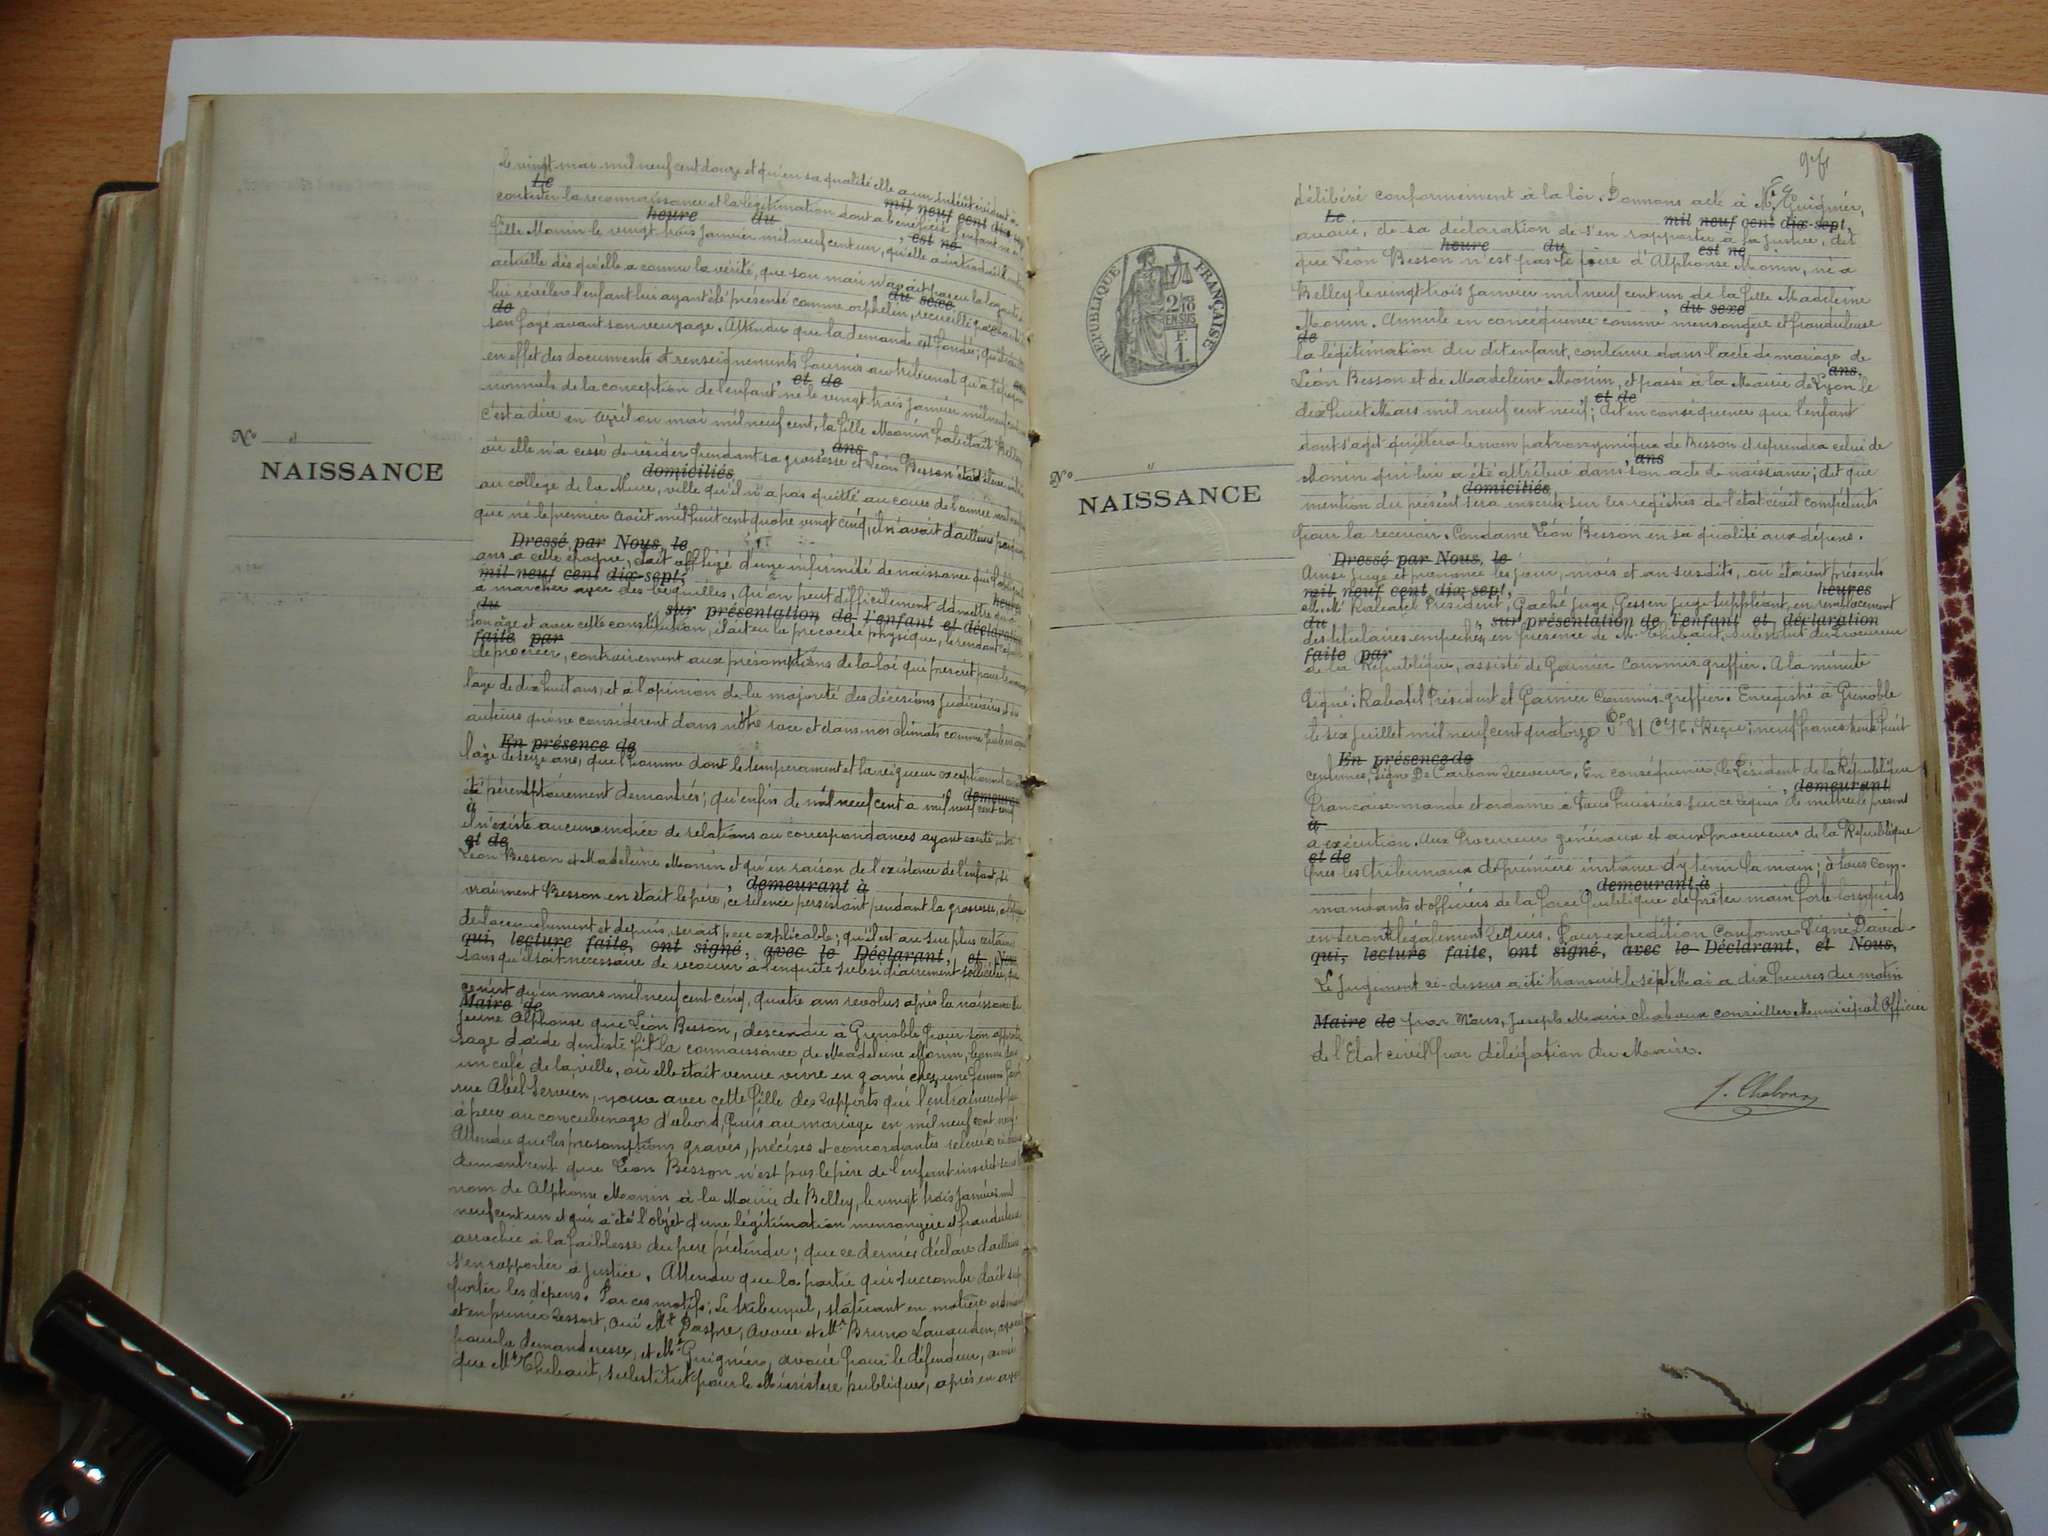 le vingt mai mil neuf cent douze et qu'en sa qualité elle a un intérêt évident à
Le
contester la reconnaissance et la légitimation dont a bénéficié l'enfant né
mil neuf cent dix-sept
heure du
fille Monin le vingt trois Janvier mil neuf cent un, qu'elle a introduit
, est né
actuelle dès qu'elle a connu la vérité, que son mari n'avait pas eu la loyauté
du sexe
lui révéler l'enfant lui ayant été présenté comme orphelin, recueilli
de
son foyer avant son veuvage. Attendu que la demande est fondée; qu'il
en effet des documents et renseignements fournis au tribunal qu'à l'époque
, et de
normale de la conception de l'enfant, né le vingt trois Janvier mil neuf cent un
c'est à dire en Avril ou mai mil neuf cent, la fille Monin habitait Belley
où elle n'a cessé de résider pendant sa grossesse et Léon Besson était élève
ans
domiciliés
N° "
NAISSANCE
au collège de la Mure, ville qu'il n'a pas quitté au cours de l'année
que né le premier Août mil huit cent quatre vingt cinq, il n'avait d'ailleurs
Dressé par Nous, le
ans à cette époque, était affligé d'une infirmité de naissance qui
mil neuf cent dix-sept,
à marcher avec des béquilles, Qu'on peut difficilement admettre
heures
du sur présentation de l'enfant et déclaration
son âge et avec cette constitution, il ait eu la précocité physique, le rendant
faite par
de procréer, contrairement aux présomptions de la loi qui prescrit pour le mariage
l'âge de dix huit ans, et à l'opinion de la majorité des décisions judiciaires et des
auteurs qui ne considèrent dans notre race et dans nos climats comme
En présence de
l'âge de seize ans, que l'homme dont le tempérament et la vigueur exceptionnels
demeurant
été péremptoirement démontrés; qu'enfin de mil neuf cent à mil neuf cent cinq
à
il n'existe aucune indice de relations ou correspondances ayant existé entre
et de
Léon Besson et Madeleine Monin et qu'en raison de l'existence de l'enfant, si
, demeurant à
vraiment Besson en était le père, ce silence persistant pendant la grossesse,
de l'accouchement et depuis, serait peu explicable; qu'il est au surplus certain
qui, lecture faite, ont signé, avec le Déclarant, et Nous
sans qu'il soit nécessaire de recourir à l'enquête subsidiairement sollicitée,
qu'en mars mil neuf cent cinq, quatre ans révolus après la naissance
Maire de
jeune Alphonse que Léon Besson, descendu à Grenoble pour son apprentis-
sage d'aide dentiste fit la connaissance, de Madeleine Monin,
un café de la ville, où elle était venue vivre en garni chez une femme
rue Abel Servien, noua avec cette fille des rapports qui l'entrainèrent peu
à peu au concubinage d'abord, puis au mariage en mil neuf cent neuf.
Attendu que les présomptions graves, précises et concordantes relevées
démontrent que Léon Besson n'est pas le père de l'enfant inscrit sous le
nom de Alphonse Monin à la Mairie de Belley, le vingt trois Janvier mil
neuf cent un et qui a été l'objet d'une légitimation mensongère et frauduleuse
arrachée à la faiblesse du père prétendu; que ce dernier déclare d'ailleurs
s'en rapporter à Justice. Attendu que la partie qui succombe doit sup-
porter les dépens. Par ces motifs: Le tribunal, statuant en matière ordinaire
et en premier ressort, oui Me Paspre, avoué et Me Bruno Lavauden, avocat
pour la demanderesse, et Me Guignier, avoué pour le défendeur, ainsi
que Mr Thibaut, substitut pour le Ministère publique, après en avoir
délibéré conformément à la loi. Donnons acte à Me Guignier,
Le
mil neuf cent dix-sept,
avoué, de sa déclaration de s'en rapporter à la justice, dit
heure du
est né
que Léon Besson n'est pas le père d'Alphonse Monin, né à
Belley le vingt trois Janvier mil neuf cent un de la fille Madeleine
, du sexe
Monin. Annule en conséquence comme mensongère et frauduleuse
de
la légitimation du dit enfant, contenue dans l'acte de mariage de
ans,
Léon Besson et de Madeleine Monin, et passé à la Mairie de Lyon le
et de
dix huit Mars mil neuf cent neuf; dit en conséquence que l'enfant
dont s'agit quittera le nom patronymique de Besson et reprendra celui de
, ans
Monin qui lui a été attribué dans son acte de naissance; dit que
, domiciliés
mention du présent sera inscrite sur les registres de l'état civil compétents
pour la recevoir. Condamne Léon Besson en sa qualité aux dépens.
Dressé par Nous, le
Ainsi jugé et prononcé les jour, mois et an susdits, où étaient présents
mil neuf cent dix-sept, heures
MM. Rabatel Président, Gaché Juge, Gessen juge suppléant, en remplacement
du , sur présentation de l'enfant et déclaration
des titulaires empêchés, en présence de Mr Thibaut, substitut du Procureur
faite par
de la République, assisté de Garnier Commis greffier. A la minute
Signé: Rabatel Président et Garnier Commis-greffier. Enregistré à Grenoble
le six juillet mil neuf cent quatorze Fo 81 Ce 16. Reçu: neuf francs trente huit
En présence de
centimes, Signé De Carbon Receveur. En conséquence, le Président de la République
, demeurant
Française mande et ordonne à tous huissiers sur ce requis de mettre le présent
à
à exécution. Aux Procureurs généraux et aux procureurs de la République
et de
près les tribunaux de première instance d'y tenir la main; à tous com-
, demeurant à
mandants et officiers de la force publique de prêter main forte lorsqu'ils
en seront légalement requis. Pour expédition Conforme Signé David
qui, lecture faite, ont signé, avec le Déclarant, et Nous,
Le Jugement ci-dessus a été transcrit le sept Mai à dix heures du matin
Maire de par Nous, Joseph Marie Chaboux conseiller Municipal Officier
de l'Etat civil par délégation du Maire.
J. Chaboux
RÉPUBLIQUE FRANÇAISE
2/10
EN SUS
F.
1
N° "
NAISSANCE